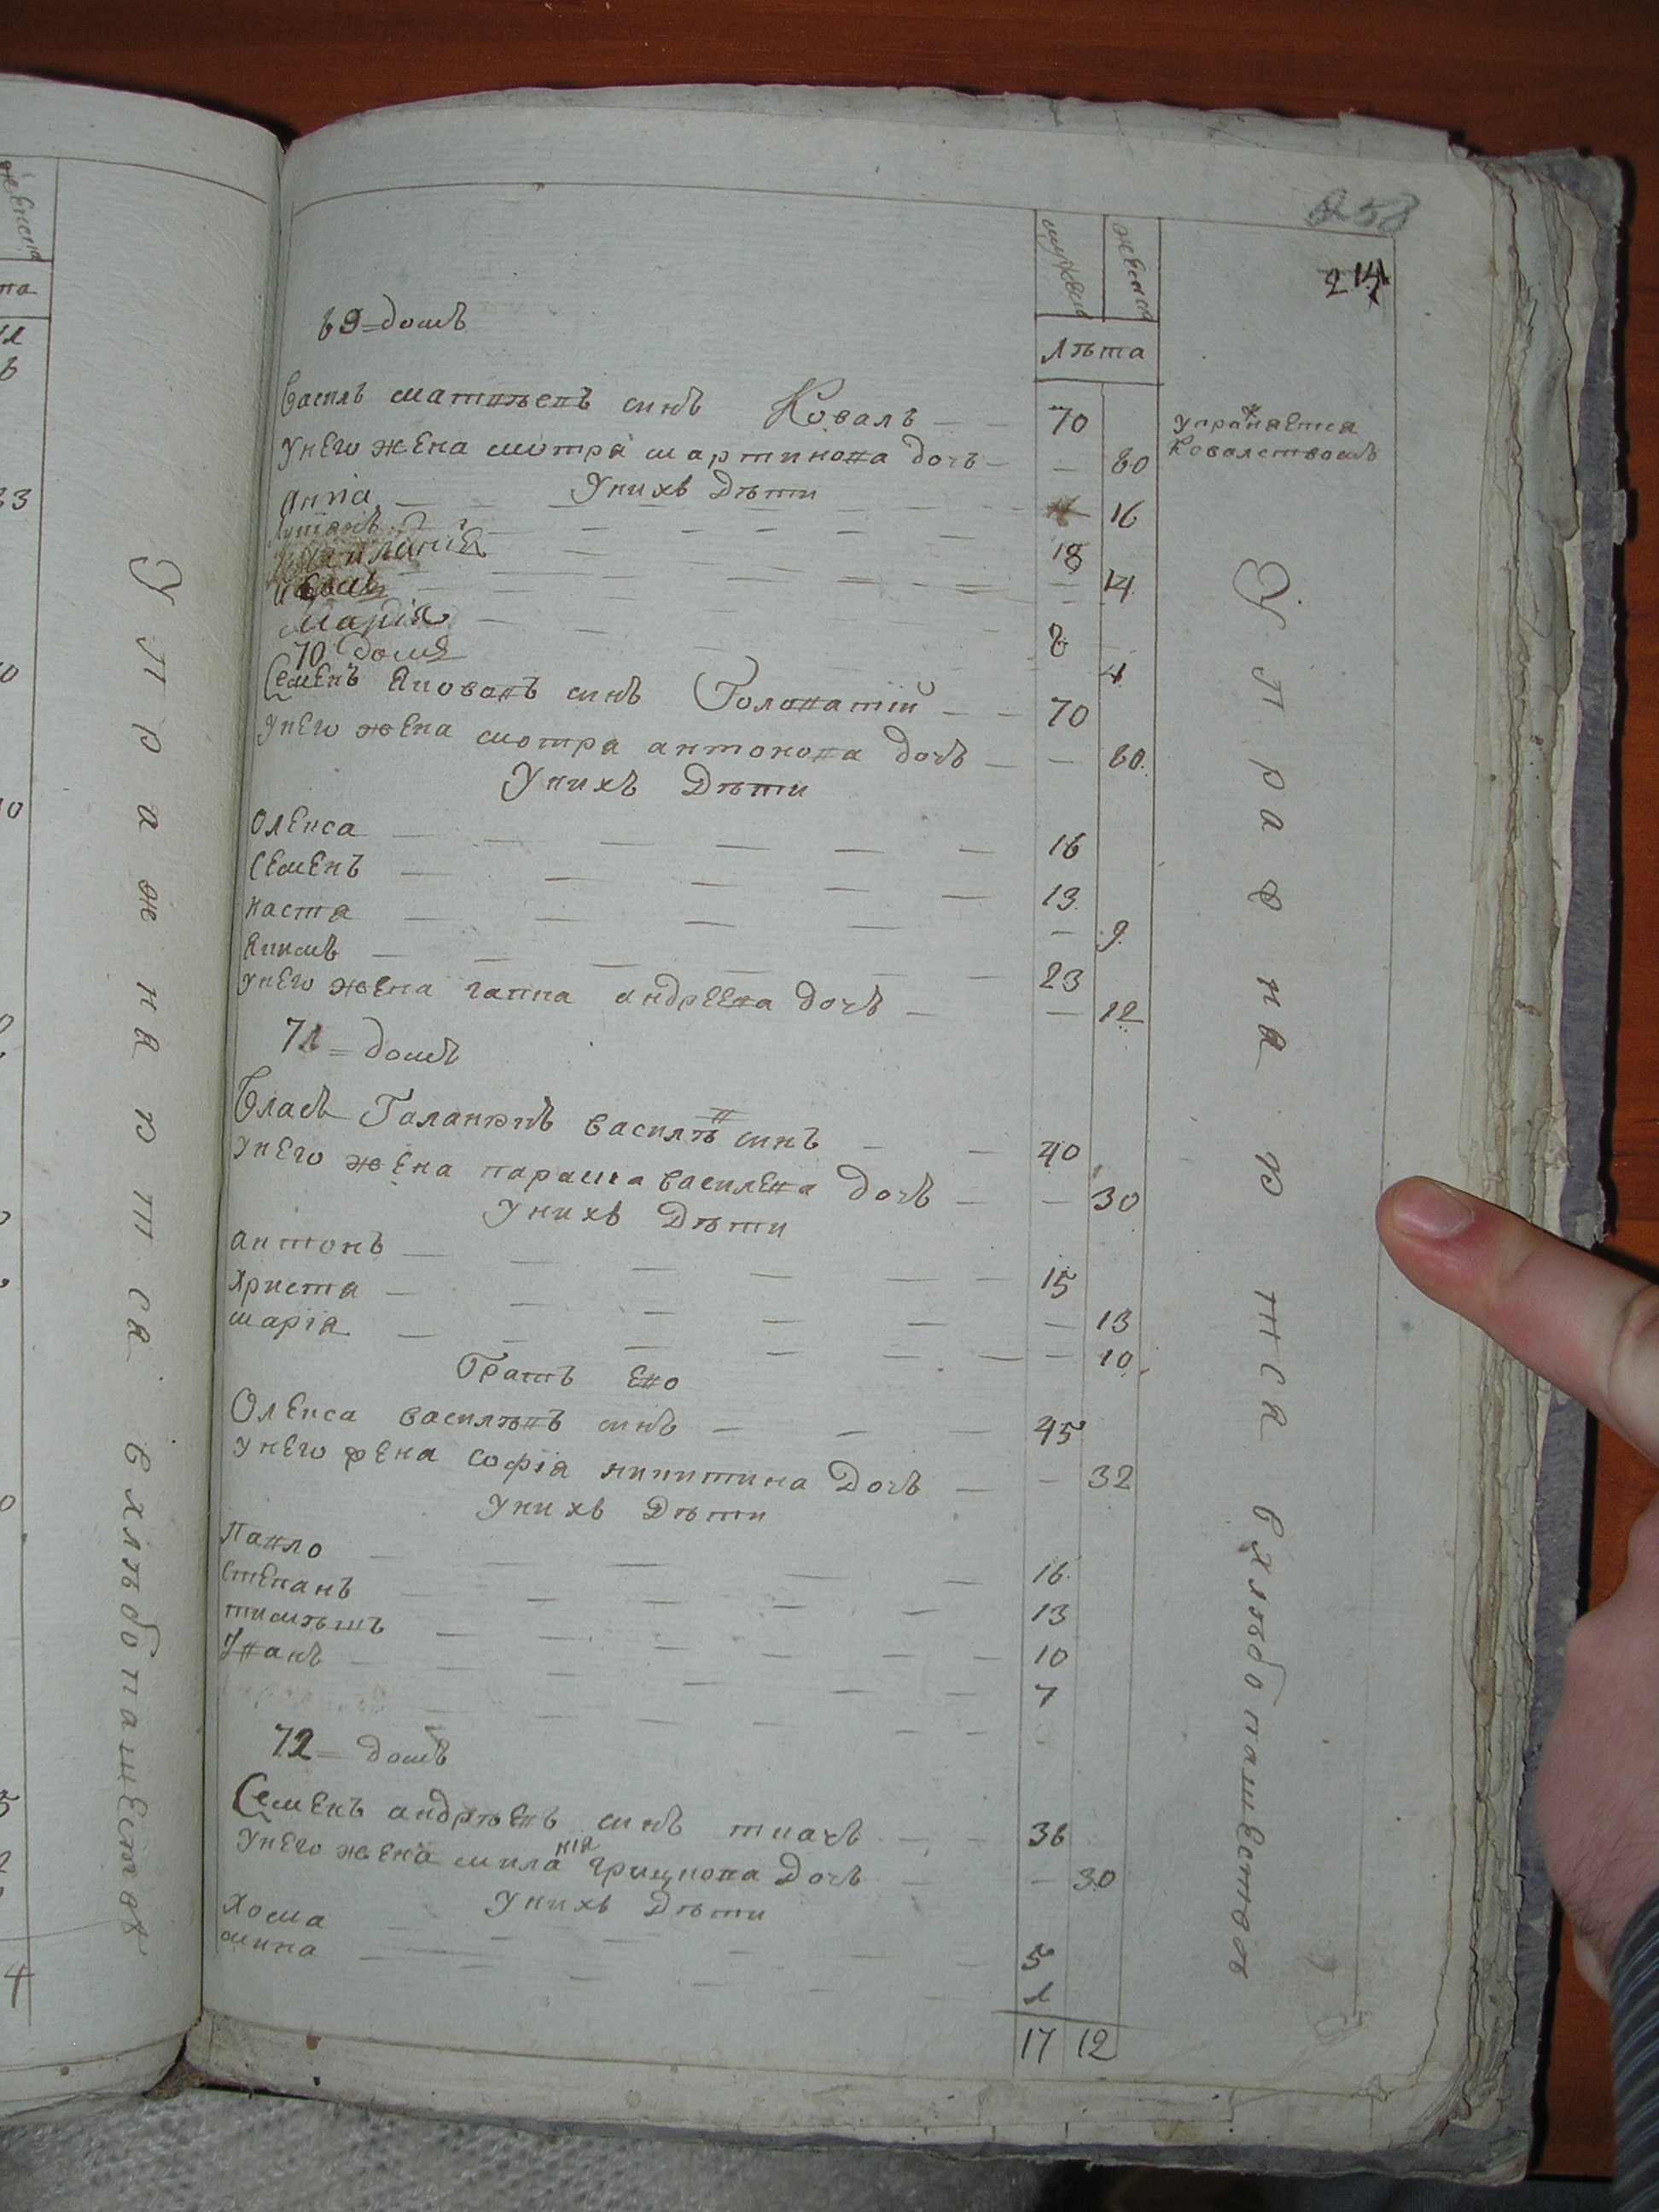 258
214
мужеска
женска
Лѣта
69=домъ
Василь матвѣевъ синъ Коваль 70
упражняется
Ковалствомъ
Унего жена мотра мартинова дочь 60
Унихъ Дѣти
Анна 16
Лукянъ 18
14
8
Марія 4
70 домъ
Семенъ Яковавъ синъ Головатій 70
Унего жена мотра антонова дочъ 60
Унихъ Дѣти
Олекса 16
Семенъ 13
Настя 9
Якимъ 23
Унего жена ганна андреева дочъ 12
71=домъ
Власъ василѣвъ синъ 40
Унего жена параска василева дочъ 30
Унихъ Дѣти
Антонъ 15
Христя 13
марія 10
Братъ Ево
Олекса василѣвъ синъ 45
Унего жена софія никитина Дочъ 32
Унихъ Дѣти
Павло 16
Степанъ 13
тимѣшъ 10
Уванъ 7
72=домъ
Семенъ андрѣевъ синъ ткачъ 36
Унего жена миланія грицкова Дочъ 30
Унихъ Дѣти
Хома 5
мина 1
17 12
Упражняются вхлѣбопашествѣ
Упражняются вхлѣбопашествѣ